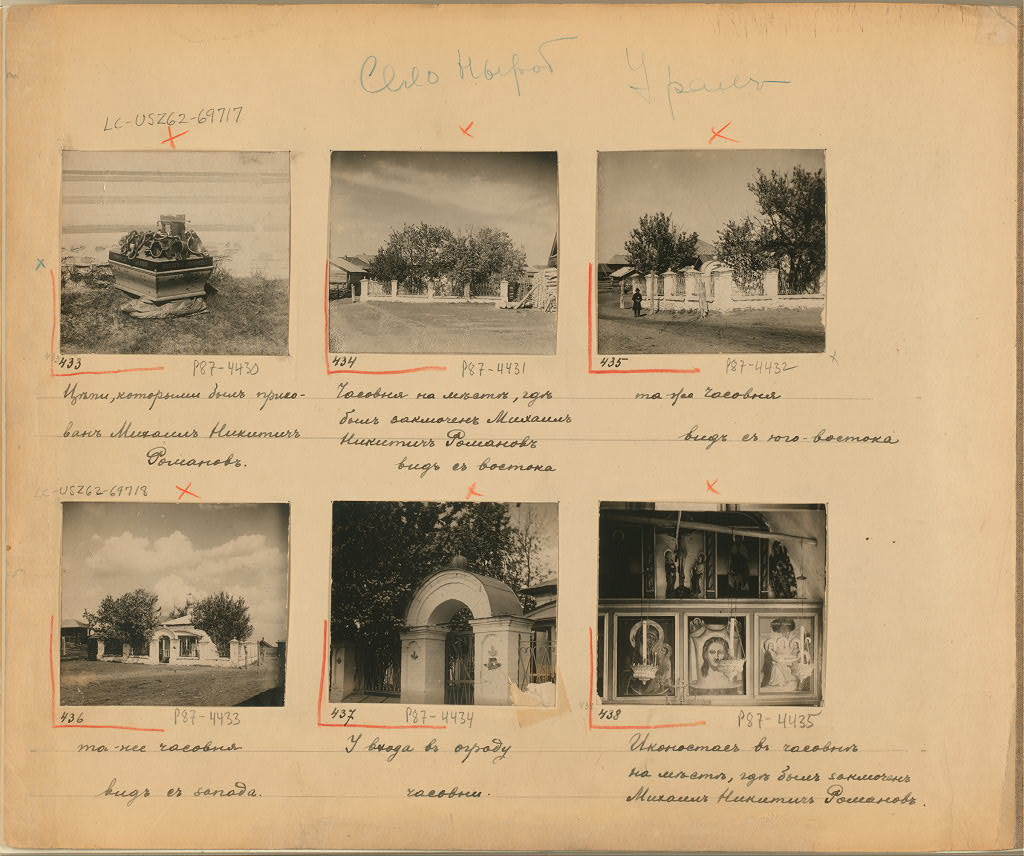 Село Ныроб Уралъ
LC-USZ62-69717
433
P87-4430
434
P87-4431
435
P87-4432
Цѣпи, которыми былъ прико-
ванъ Михаилъ Никитичъ
Романовъ.
Часовня на мѣстѣ, гдѣ
былъ заключенъ Михаилъ
Никитичъ Романовъ
видъ съ востока
та-же часовня
видъ съ юго-востока
LC-USZ62-69718
436
P87-4433
437
P87-4434
438
P87-4435
та-же часовня
видъ съ запада.
У входа въ ограду
часовни.
Иконостасъ въ часовнѣ
на мѣстѣ, гдѣ былъ заключенъ
Михаилъ Никитичъ Романовъ.